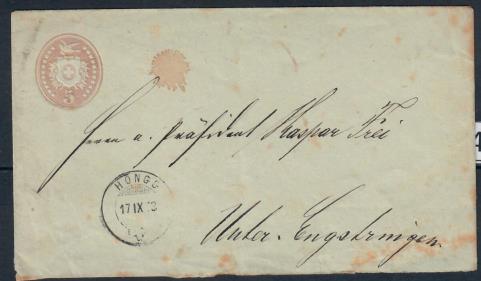 5
Herrn a. Präsident Kaspar Frei
HÖNGG
17 IX
Unter-Engstringen.